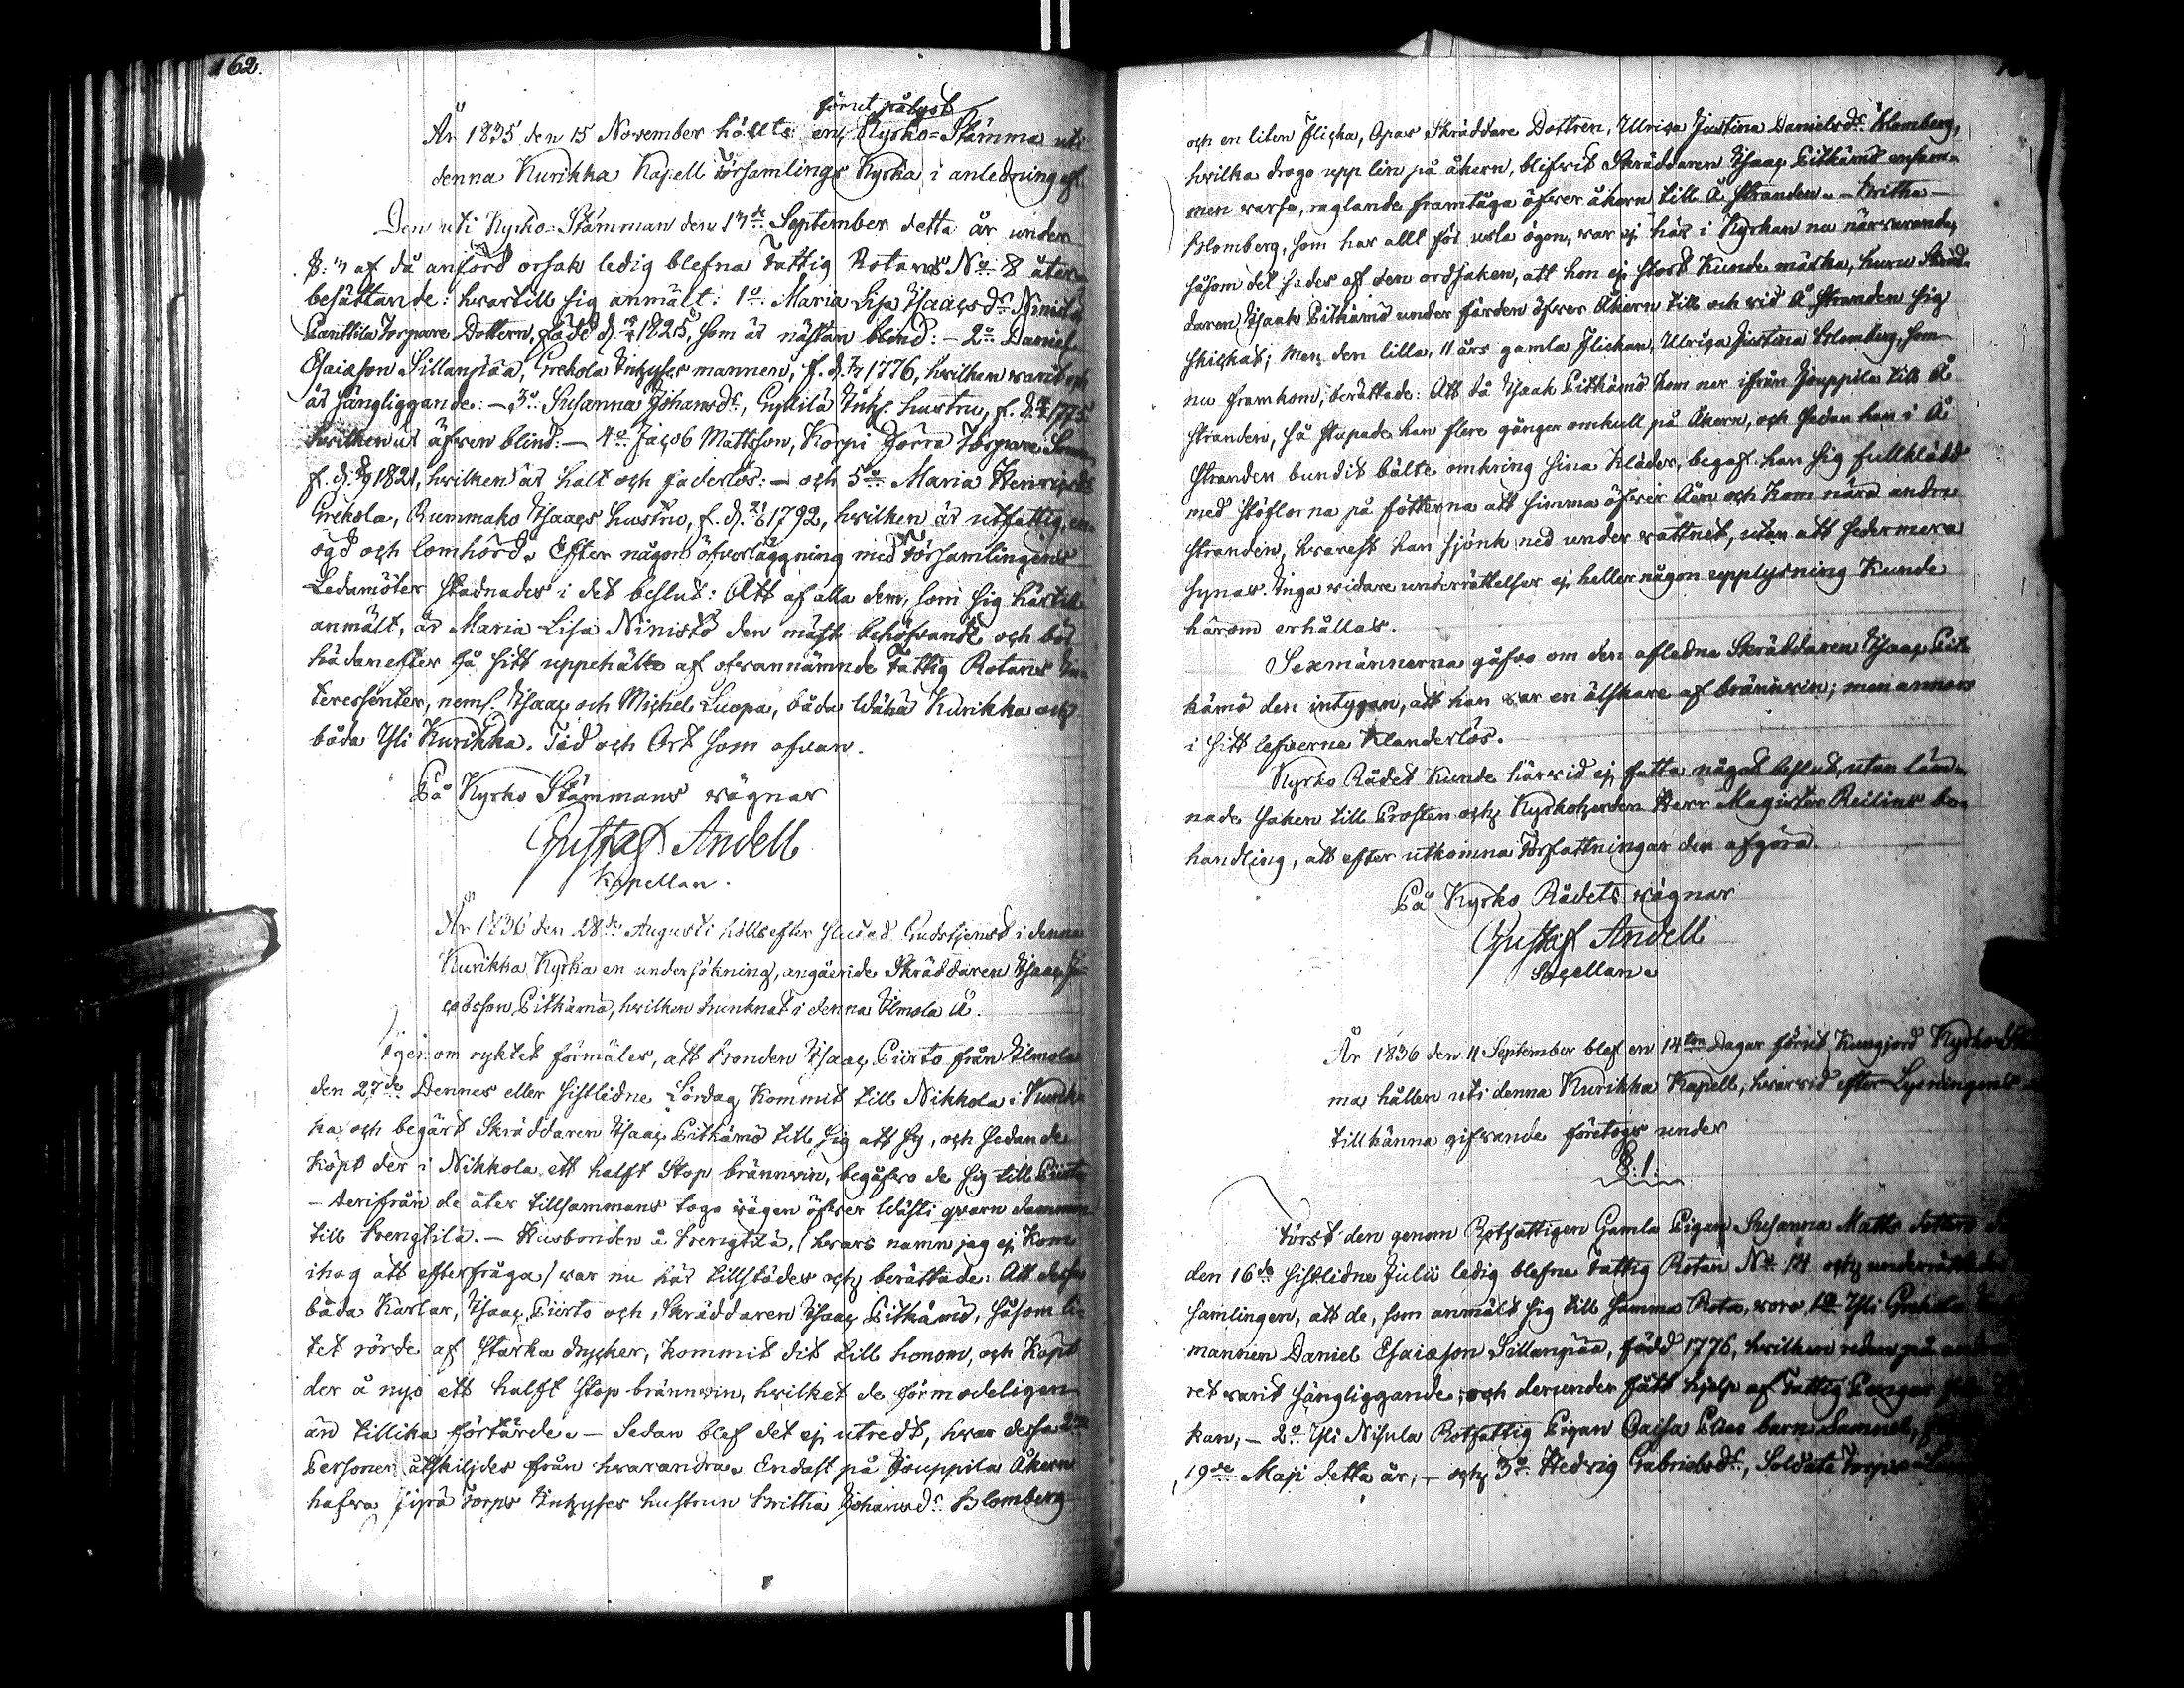 162.
förut pålyst
År 1835 den 15 November hölts en Kyrko=Stämma uti
denna Kurikka Kapell Församlings Kyrka i anledning af
Den uti Kyrko=Stämman den 13de September detta år under
§: 3 af då anförd orsak ledig blefna Fattig Rotans No 8 åter-
besättande: hvartill sig anmält: 1o Maria Lisa Isaacsdr Ninistö
Panttila Torpare Dottern, född d. 1825, som är nästan blind: – 2o Daniel
Esaiæson Sillanpää, Grekola Inhyses mannen, f. d. 1776, hvilken varit och
är sängliggande: – 3o Susanna Johansdr, Inh. hustru, f. d. 1775
hvilken är äfven blind: – 4o Jacob Mattsson, Korpi Jorra Torpare Son,
f. d. 1821, hvilken är halt och faderlös: – och 5o Maria Henricsdr
Grekola, Rummako Isaacs hustru, f. d. 1792, hvilken är utfattig, en-
ögd och lomhörd. Efter någon öfverläggning med Församlingens
Ledamöter stadnades i det beslut: Att af alla dem, som sig härtill
anmält, är Maria Lisa Ninistö den mäst behöfvande och bör
hädanefter få sitt uppehälle af ofvannämnde Fattig Rotans In-
teressenter, neml. Isaac och Michel Luopa, båda Wähä Kurikka och
båda Yli Kurikka. Tid och Ort som ofvan.
På Kyrko Stämmans vägnar
Gustaf Andell
Kapellan.
År 1836 den 28de Augusti hölls efter slutad Gudstjenst i denna
Kurikka Kyrka en undersökning, angående Skräddaren Isaac Ja-
cobsson Pitkämö, hvilken drunknat i denna Ilmola Å.
Igenom ryktet förmäles, att bonden Isaac Piirto från Ilmola
den 27de Dennes eller sistlidne Lördag kommit till Nikkola i Kurik-
ka och begärt Skräddaren Isaac Pitkämö till sig att sy, och sedan de
köpt der i Nikkola ett halft Stop brännvin, begåfvo de sig till Piirto
– derifrån de åter tillsammans togo vägen öfver Wästi qvarn dammen
till Prengtilä. – Husbonden å Prengtilä, (hvars namn jag ej kom
ihog att efterfråga) var nu här tillstädes och berättade: Att dessa
båda Karlar, Isaac Piirto och Skräddaren Isaac Pitkämö, såsom li-
tet rörde af starka drycker, kommit dit till honom, och köpt
der å nyo ett halft Stop brännvin, hvilket de förmodeligen
än tillika förtärde. – Sedan blef det ej utredt, hvar dessa 2ne
Personer åtskiljdes från hvarandra. Endast på Jouppila Åkern
hafva Torps Inhyses hustrun Britha Johansdr Blomberg
och en liten flicka, Skräddare Dottren, Ulrica Justina Danielsdr Blomberg,
hvilka drogo upp lin på åkern, blifvit Skräddaren Isaac Pitkämö ensam-
men varse, raglande framtåga öfver åkern till Å stranden. – Britha
Blomberg, som har allt för usla ögon, var ej här i Kyrkan nu närvarande,
såsom det sades af den ordsaken, att hon ej stort kunde märka, huru Skräd-
daren Isaak Pitkämö under färden öfver Åkern till och vid Å stranden sig
skickat; Men den lilla, 11 års gamla flickan, Ulrica Justina Blomberg, som
nu framkom, berättade: Att då Isaak Pitkämö kom ner ifrån Jouppila till Å
stranden, så stupade han flere gånger omkull på Åkern, och sedan han i Å
stranden bundit bälte omkring sina kläder, begaf han sig fullklädd
med stöflorna på fötterna att simma öfver Ån och kom nära andre
stranden, hvarest han sjönk ned under vattnet, utan att sedermera
synas. Inga vidare underrättelser ej heller någon upplysning kunde
härom erhållas.
Sexmännerna gåfvo om den aflidna Skräddaren Isaac Pit-
kämö den intygan, att han var en älskare af brännvin; men annars
i sitt lefverne klanderlös.
Kyrko Rådet kunde härvid ej fatta något beslut, utan läm-
nade saken till Prosten och Kyrkoherden Herr Magister Reilins be-
handling, att efter utkomna Författningar den afgöra.
På Kyrko Rådets vägnar
Gustaf Andell
Capellan.
År 1836 den 11 September blef en 14ton Dagar förut kungjord Kyrko
ma hållen uti denna Kurikka Kapell, hvarvid efter Lysningens
tillkänna gifvande företogs under
§: 1:
Först den genom Rotfattigen Gamla Pigan Susanna Matts dotters
den 16de sistlidne Julii ledig blefne Fattig Rotan No 14 och underrättades
samlingen, att de, som anmält sig till samma Rota, voro, 1o Yli Grekola
mannen Daniel Esaiæson Sillanpää, född 1776, hvilken redan på andra
ret varit sängliggande, och derunder fått hjelp af Fattig Pengar
kan; – 2o Yli Nisula Rotfattig Pigan Caisa barn Samuel,
19de Maji detta år; – och 3o Hedvig Gabrielsdr, Soldate Torps